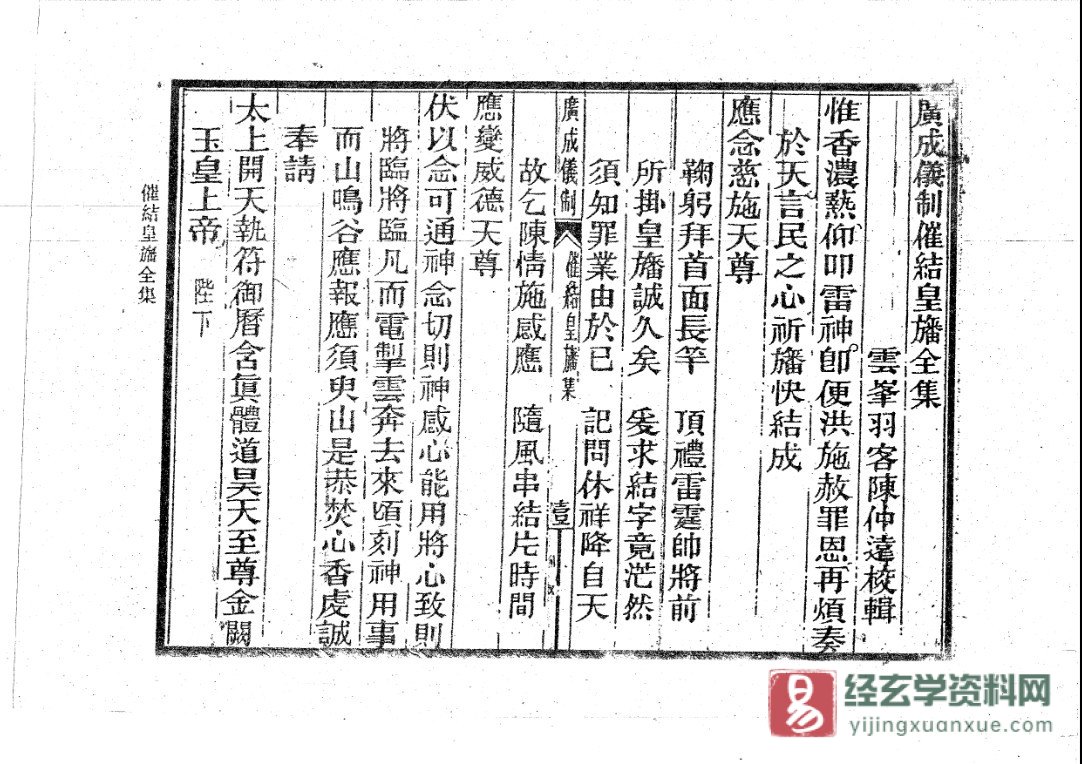 廣成儀制催結皇旛全集
雲峯羽客陳仲遠校輯
惟香濃爇仰叩雷神卽便洪施赦罪恩再煩奏
於天言民之心祈旛快結成
應念慈施天尊
鞠躬拜首面長竿　頂禮雷霆帥將前
所掛皇旛誠久矣　爰求結字竟茫然
須知罪業由於已　記問休祥降自天
廣成儀制　催結皇旛集　壹
故乞陳情施感應　隨風串結片時間
應變威德天尊
伏以念可通神念切則神感心能用將心致則
將臨將臨凡而電掣雲奔去來頃刻神用事
而山鳴谷應報應須臾山是恭焚心香虔誠
奉請
太上開天執符御曆含眞體道昊天至尊金闕
玉皇上帝　陛下
催結皇旛全集
易
经玄学资料网
yijingxuanxue.com